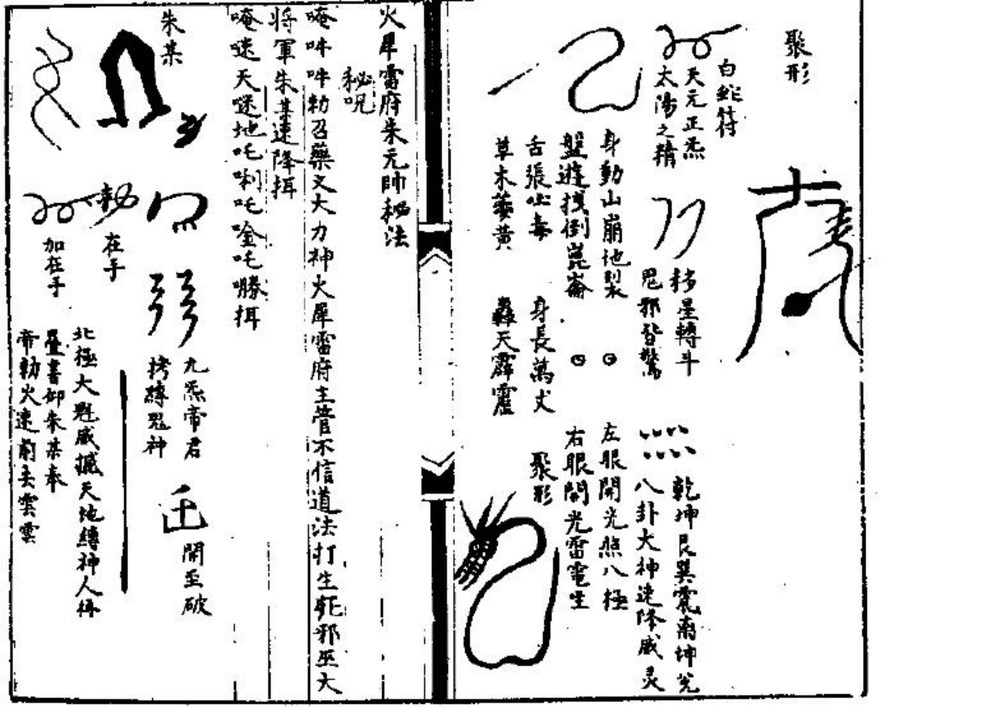 聚形
白蛇符
天元正炁
太陽之精
移星轉斗
鬼邪皆驚
乾坤艮巽震离坤兌
八卦大神速降威灵
身動山崩地裂
盤遊找倒崑崙
左眼開光照八極
右眼開光雷電生
舌張吐毒
草木萎黄
身長萬丈
轟天霹靂
聚形
火犀雷府朱元帥秘法
秘呪
唵吽吽勅召藥叉大力神火犀雷府主管不信道法打生死邪巫大
將軍朱某速降揖
唵迷天迷地吒唎吒唫吒𭋂揖
朱某
勅
在手
加在手
九炁帝君
拷縛鬼神
開至破
北極大魁威撼天地縛神人
疊書卸朱某奉
帝勅火速前去雲雲